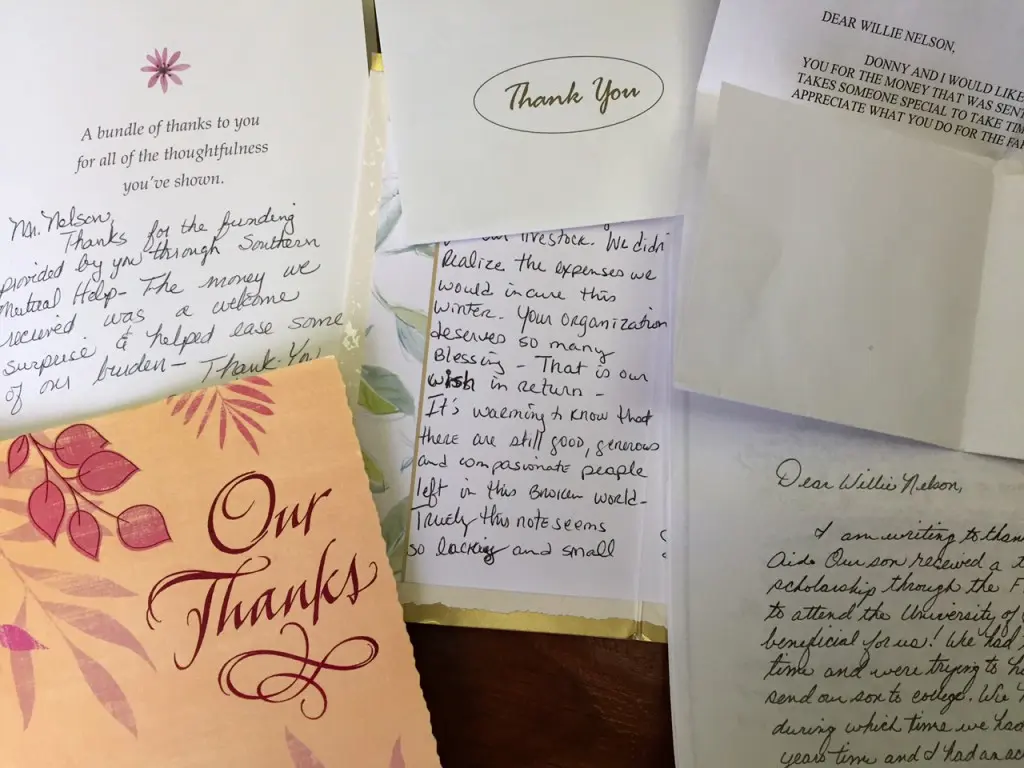 A bundle of thanks to you
for all of the thoughtfulness
you've shown.
Mr. Nelson,
Thanks for the funding
provided by you through Southern
Mutual Help- The money we
recieved was a welcome
surprise & helped ease some
of our burden- Thank-You
Our
Thanks
Thank You
livestock. We didn
Realize the expenses we
would incure this
winter. Your organization
deserves so many
Blessing - That is our
wish in return -
It's warming to know that
there are still good, generous
and compasionate people
left in this Broken world-
Truely this note seems
so lacking and small
DEAR WILLIE NELSON,
DONNY AND I WOULD LIKE
YOU FOR THE MONEY THAT WAS SENT
TAKES SOMEONE SPECIAL TO TAKE TIM
APPRECIATE WHAT YOU DO FOR THE FA
Dear Willie Nelson,
I am writing to than
Aid. Our son received a
scholarship through the F
to attend the University of
beneficial for us! We had
time and were trying to
send our son to college. We
during which time we had
years time and I had an ac